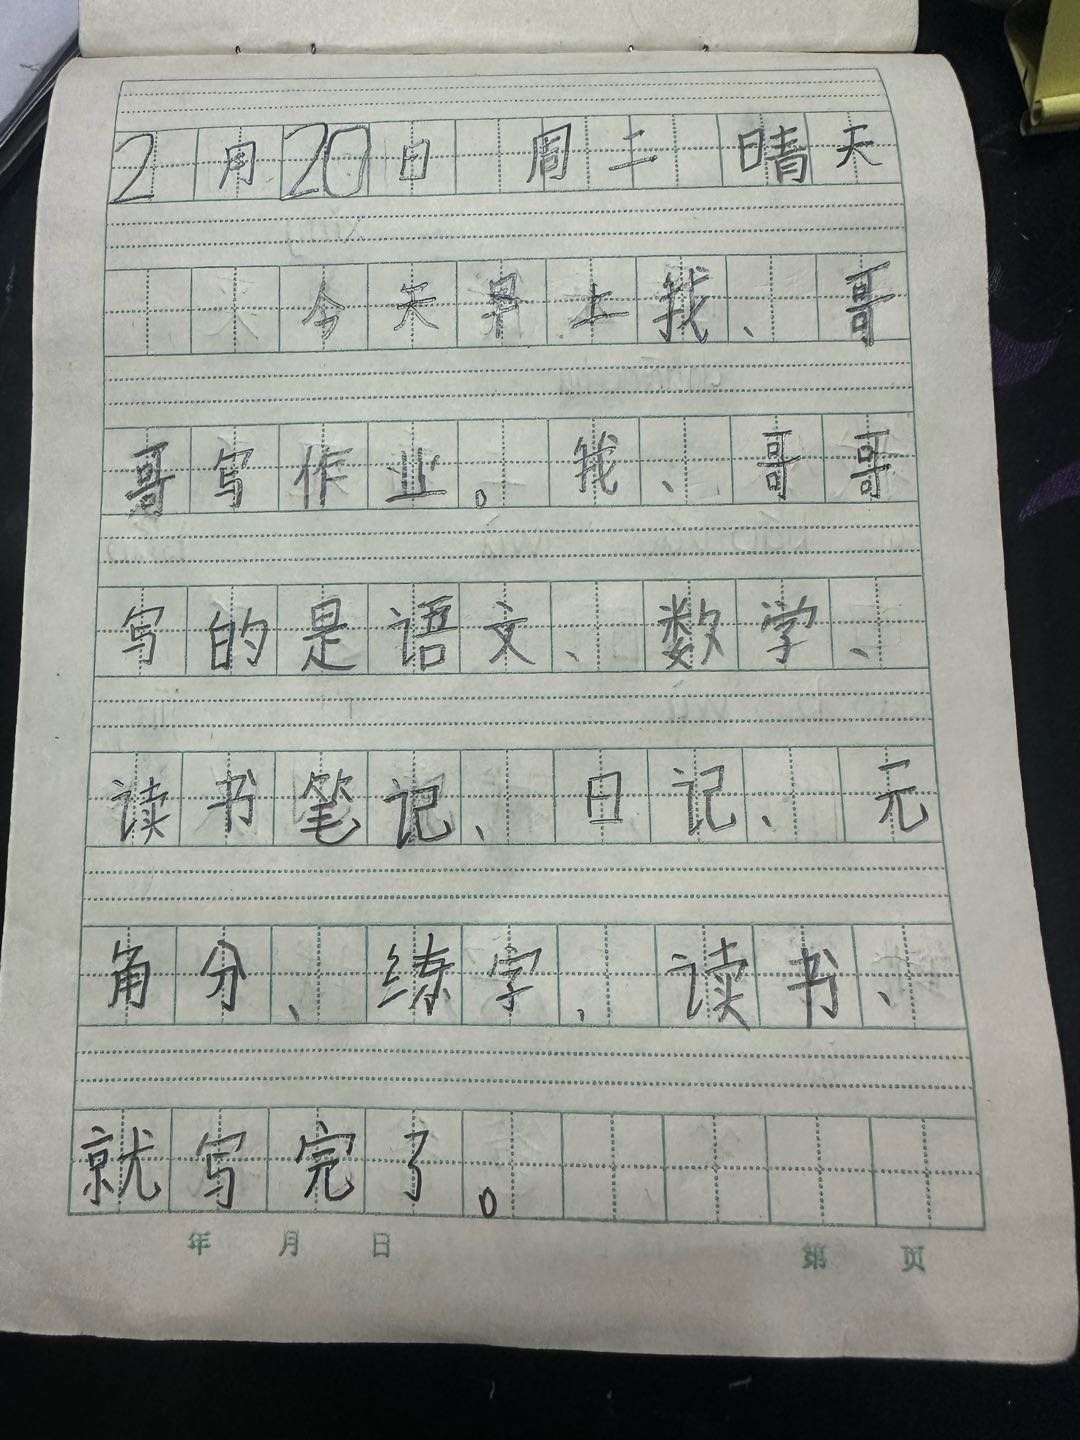 2月20日 周二 晴天
今天早上我、哥
哥写作业。我、哥哥
写的是语文、数学、
读书笔记、日记、元
角分、练字、读书、
就写完了。
年 月 日 第 页